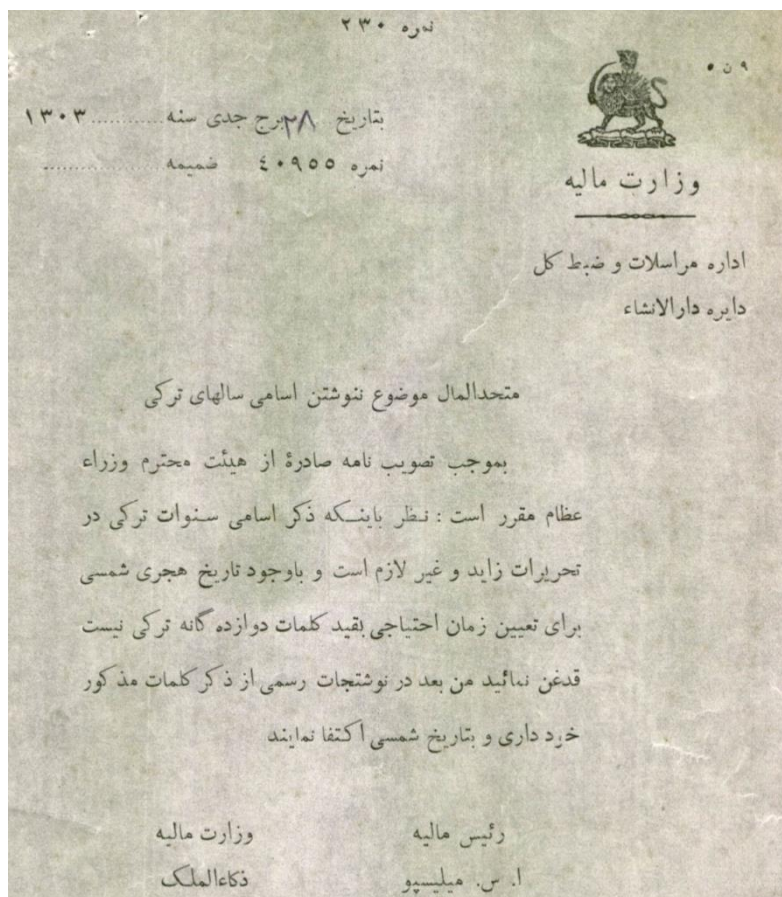 نمره ۲۳۰
۹ ن ۵
بتاریخ ۲۸ برج جدی سنه ............ ۱۳۰۳
نمره ٤۰۹۵۵ ضمیمه ..................
وزارت مالیه
اداره مراسلات و ضبط کل
دایره دارالانشاء
متحدالمال موضوع ننوشتن اسامی سالهای ترکی
بموجب تصویب نامه صادرهٔ از هیئت محترم وزراء
عظام مقرر است : نظر باینکه ذکر اسامی سنوات ترکی در
تحریرات زاید و غیر لازم است و باوجود تاریخ هجری شمسی
برای تعیین زمان احتیاجی بقید کلمات دوازده گانه ترکی نیست
قدغن نمائید من بعد در نوشتجات رسمی از ذکر کلمات مذکور
خرد داری و بتاریخ شمسی اکتفا نمایند
رئیس مالیه وزارت مالیه
ا. س. میلیسپو ذکاءالملک